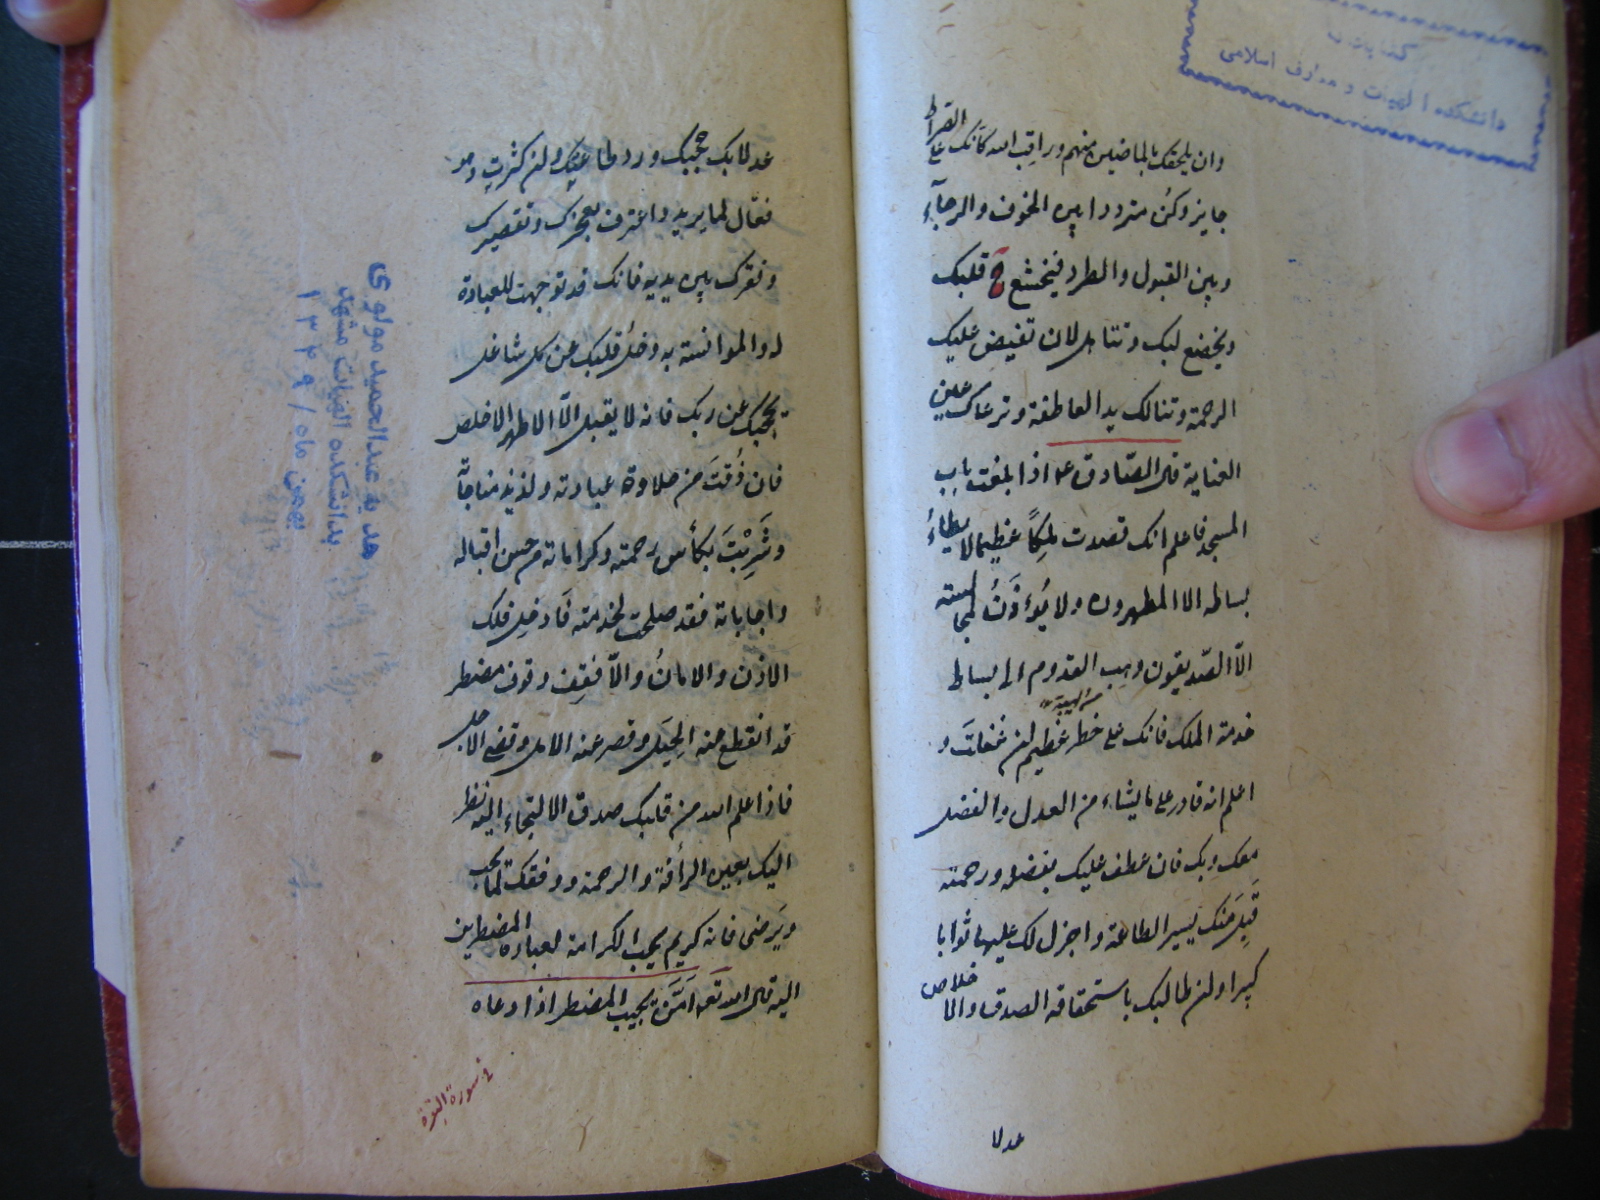 کتابخانه
دانشکده الهیات و معارف اسلامی
وان يلحقك بالماضين منهم وراقب الله كانك على الصراط
جايز وكُن مترددا بين الخوف والرجآء
وبين القبول والطرد فيخشع ح قلبك
ويخضع لبك وتتاهل لان تفيض عليك
الرحمة وتنالك يد العاطفة وترعاك عين
العناية قال الصّادق ع اذا بلغت باب
المسجد فاعلم انك قصدت ملِكًا عظيما لا يطاءُ
بساطه الا المطهرون ولا يُوءذَنُ لمجالسته
الّا الصّديقون وهِب القدوم الى بساط
خدمة الملك هيبة الملك فانك على خطر عظيم ان غفلتَ و
اعلم انه قادر على ما يشاء من العدل والفضل
معك وبك فان عطف عليك بفضله ورحمته
قَبِلَ منك يسير الطاعة واجزل لك عليها ثوابا
كبيرا وان طالبك باستحقاقه الصدق والاخلاص
عدلا
عدلا بك حجبك ورد طاعتك وان كثرت وهو
فعّال لما يريد واعترف بعجزك وتقصيرك
وفقرك بين يديه فانك قد توجهت للعبادة
له والموانسة به وخلُ قلبك عن كل شاغل
يحجبك عن ربك فانه لا يقبل الّا الاطهر الاخلص
فان ذُقتَ من حلاوة عبادته ولذيذ مناجاته
وشَرِبْتَ بكأس رحمته وكراماته من حسن اقباله
واجاباته فقد صلحت لخدمته فَادخل فلك
الاذن والامانُ والّا فقِف وقوف مضطر
قد انقطع عنه الحِيَل وقصر عنه الامل وقضى الاجل
فاذا علم الله من قلبك صدق الالتجاء اليه نظر
اليك بعين الرأفة والرحمة ووفقك لما يحب
ويَرضى فانه كريم يحب الكرامة لعباده المضطرين
اليه قال الله تعه اَمَّنْ يجيب المضطر اذا دعاه
هدیه عبدالحمید مولوی
بدانشکده الهیات مشهد
بهمن ماه / ۱۳۴۹